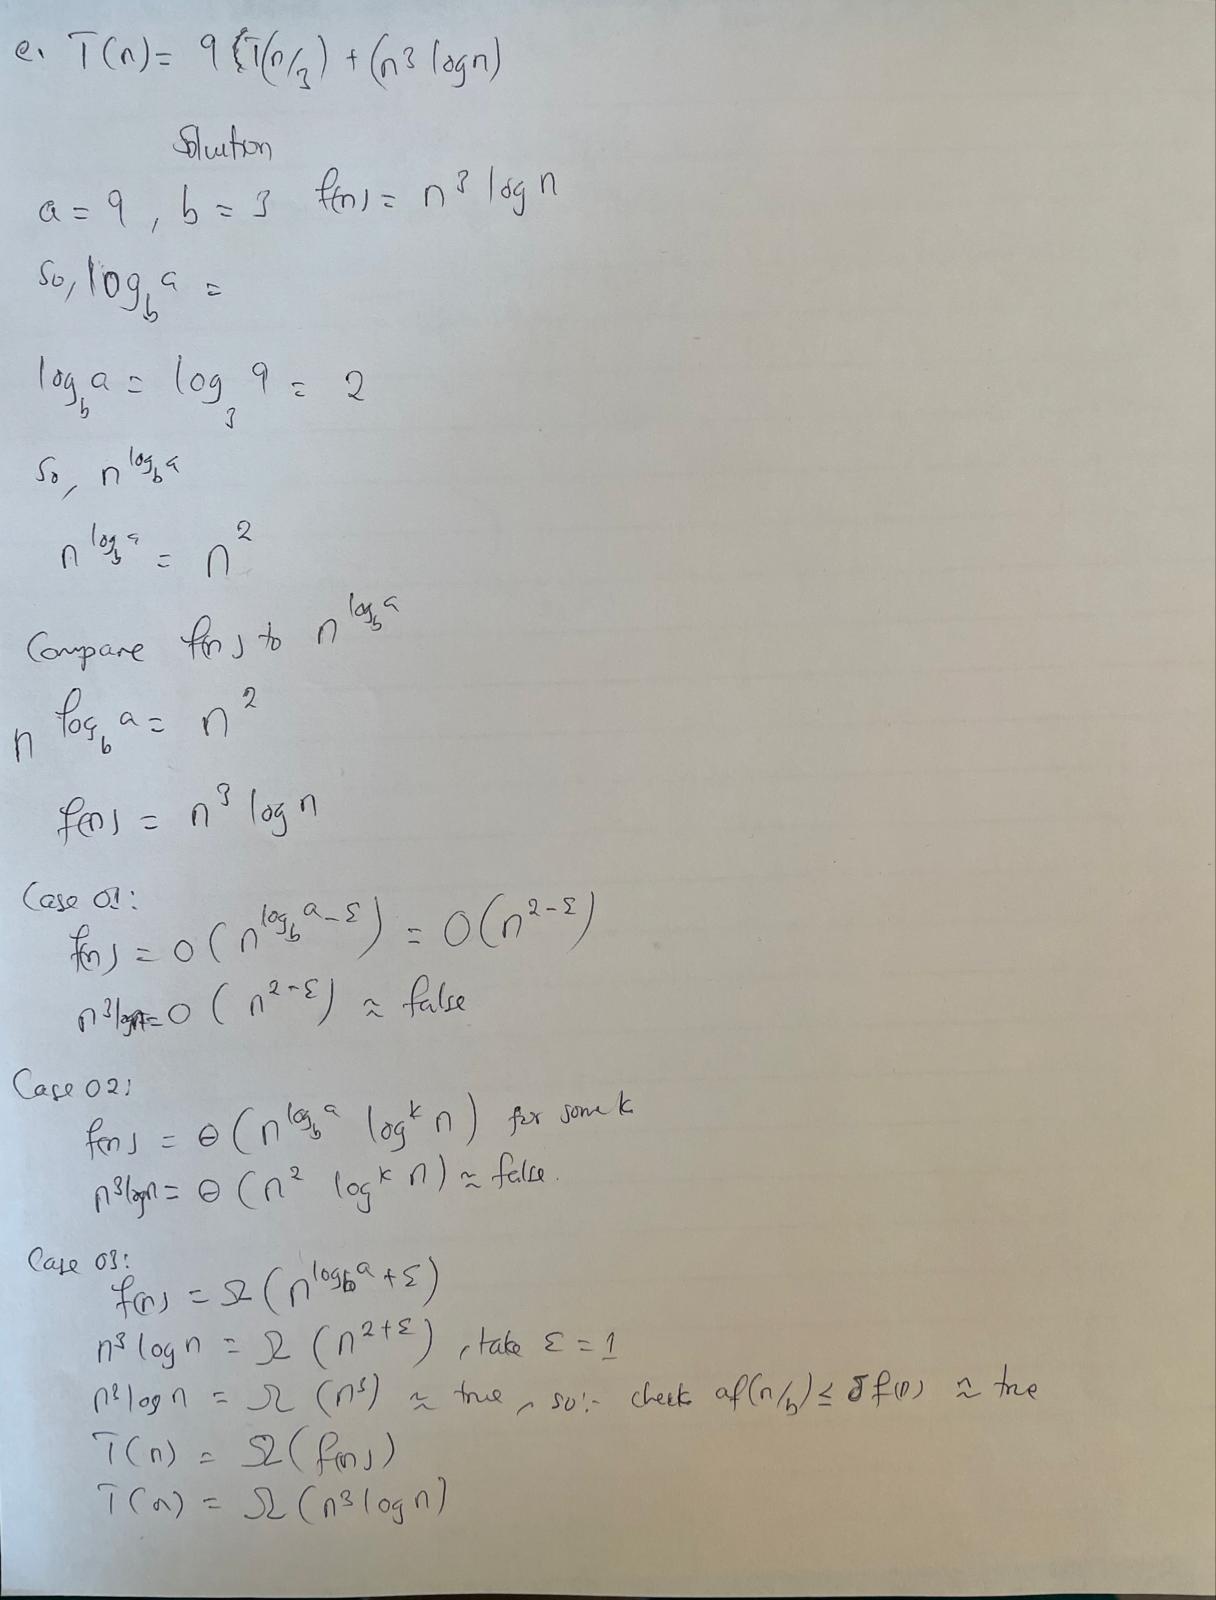 e. T(n) = 9 T(n/3) + (n³ log n)
Solution
a = 9 , b = 3 f(n) = n³ log n
So, log_b a =
log_b a = log_3 9 = 2
So, n^(log_b a)
n^(log_b a) = n²
Compare f(n) to n^(log_b a)
n^(log_b a) = n²
f(n) = n³ log n
Case 01:
f(n) = O(n^(log_b a - ε)) = O(n^(2-ε))
n³ log n = O(n^(2-ε)) ≈ false
Case 02:
f(n) = Θ(n^(log_b a) log^k n) for some k
n³ log n = Θ(n² log^k n) ≈ false.
Case 03:
f(n) = Ω(n^(log_b a + ε))
n³ log n = Ω(n^(2+ε)) , take ε = 1
n³ log n = Ω(n³) ≈ true, so:- check af(n/b) ≤ δ f(n) ≈ true
T(n) = Ω(f(n))
T(n) = Ω(n³ log n)